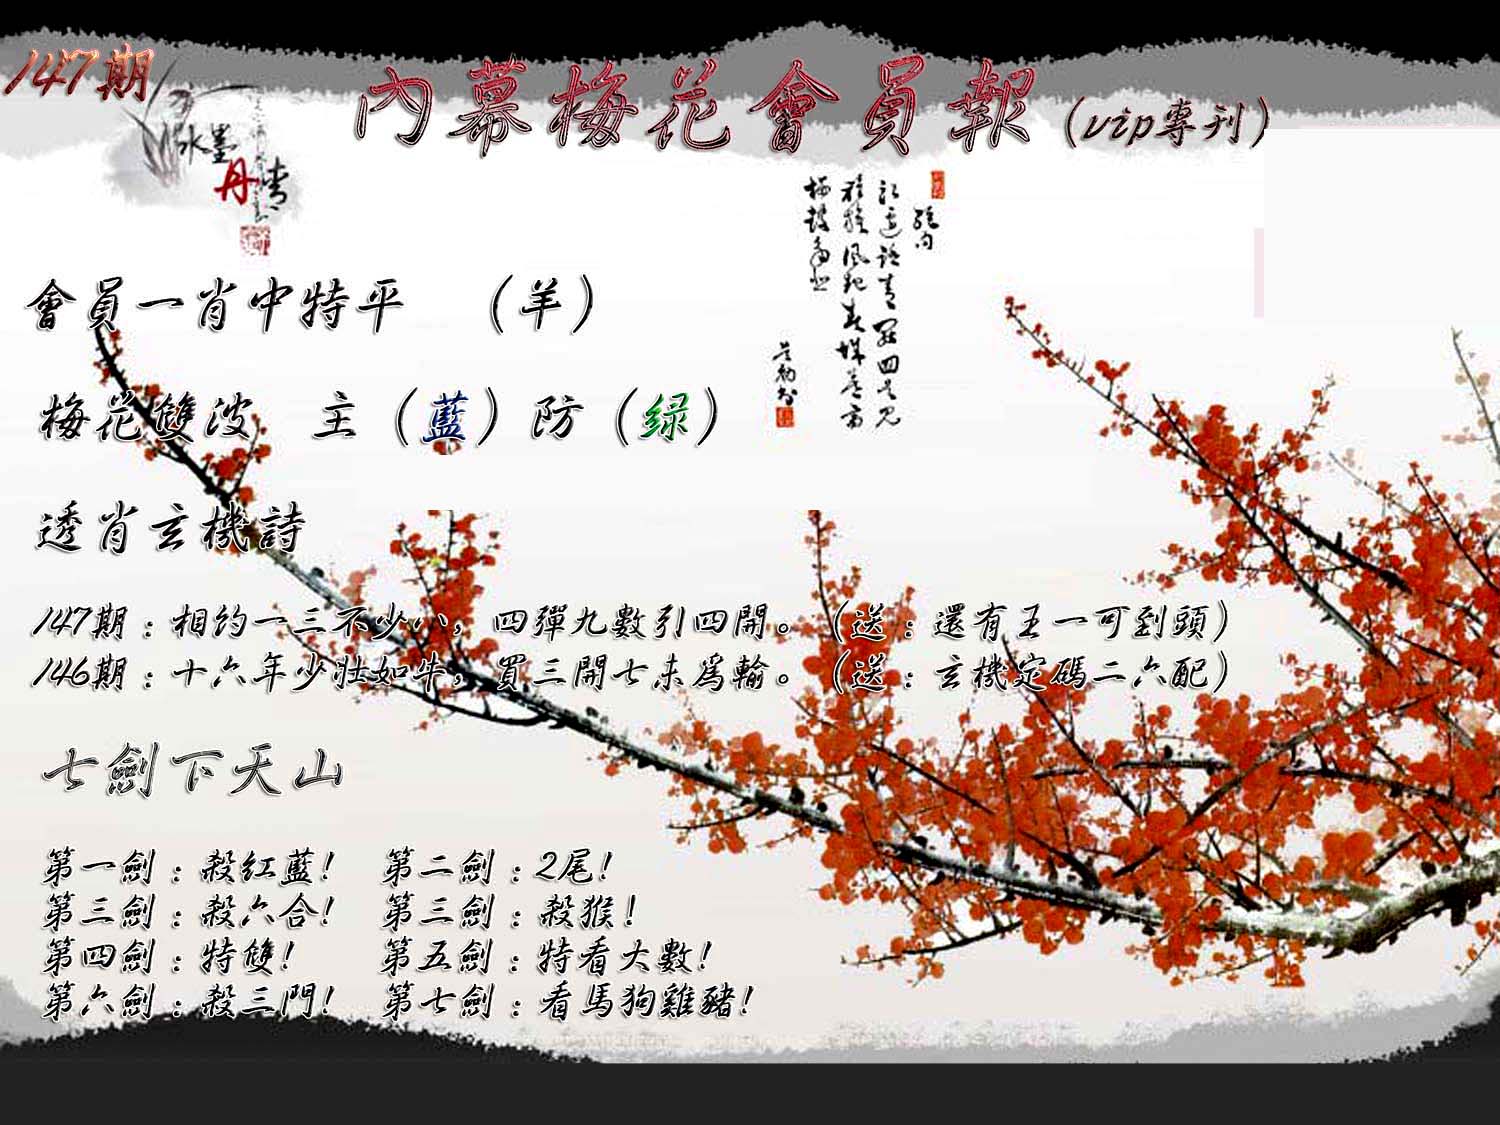 147期
內幕梅花會員報（vip專刊）
水墨
丹青
會員一肖中特平　（羊）
梅花雙波　主（藍）防（绿）
透肖玄機詩
147期：相約一三不少八，四彈九數引四開。（送：還有王一可到頭）
146期：十六年少壯如牛，買三開七未爲輸。（送：玄機定碼二六配）
七劍下天山
第一劍：殺红藍！　第二劍：2尾！
第三劍：殺六合！　第三劍：殺猴！
第四劍：特雙！　第五劍：特看大數！
第六劍：殺三門！　第七劍：看馬狗雞豬！